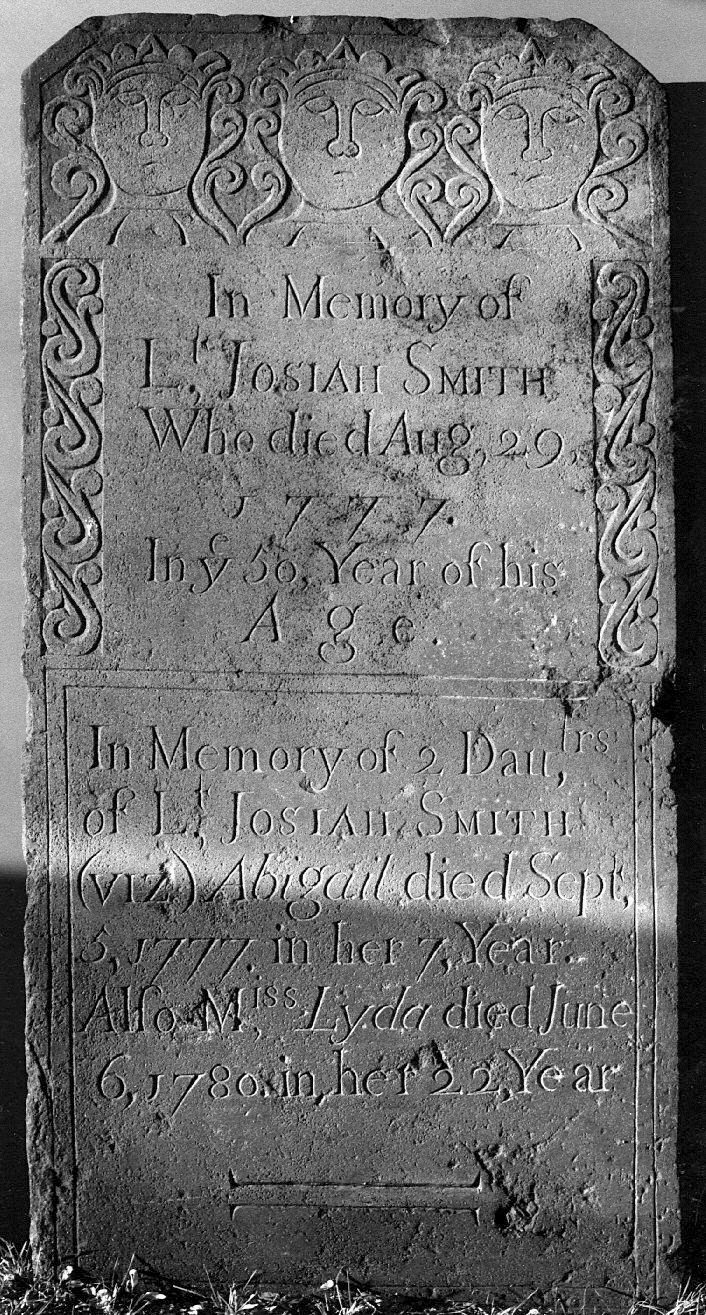 In Memory of
Lt, JOSIAH SMITH
Who died Aug, 29,
1777.
In ye 50, Year of his
Age.
In Memory of 2 Dau,trs
of Lt, JOSIAH SMITH
(VIZ) Abigail died Sept,
5, 1777. in her 7, Year.
Alſo M,iss Lyda died June
6, 1780. in, her 22, Year